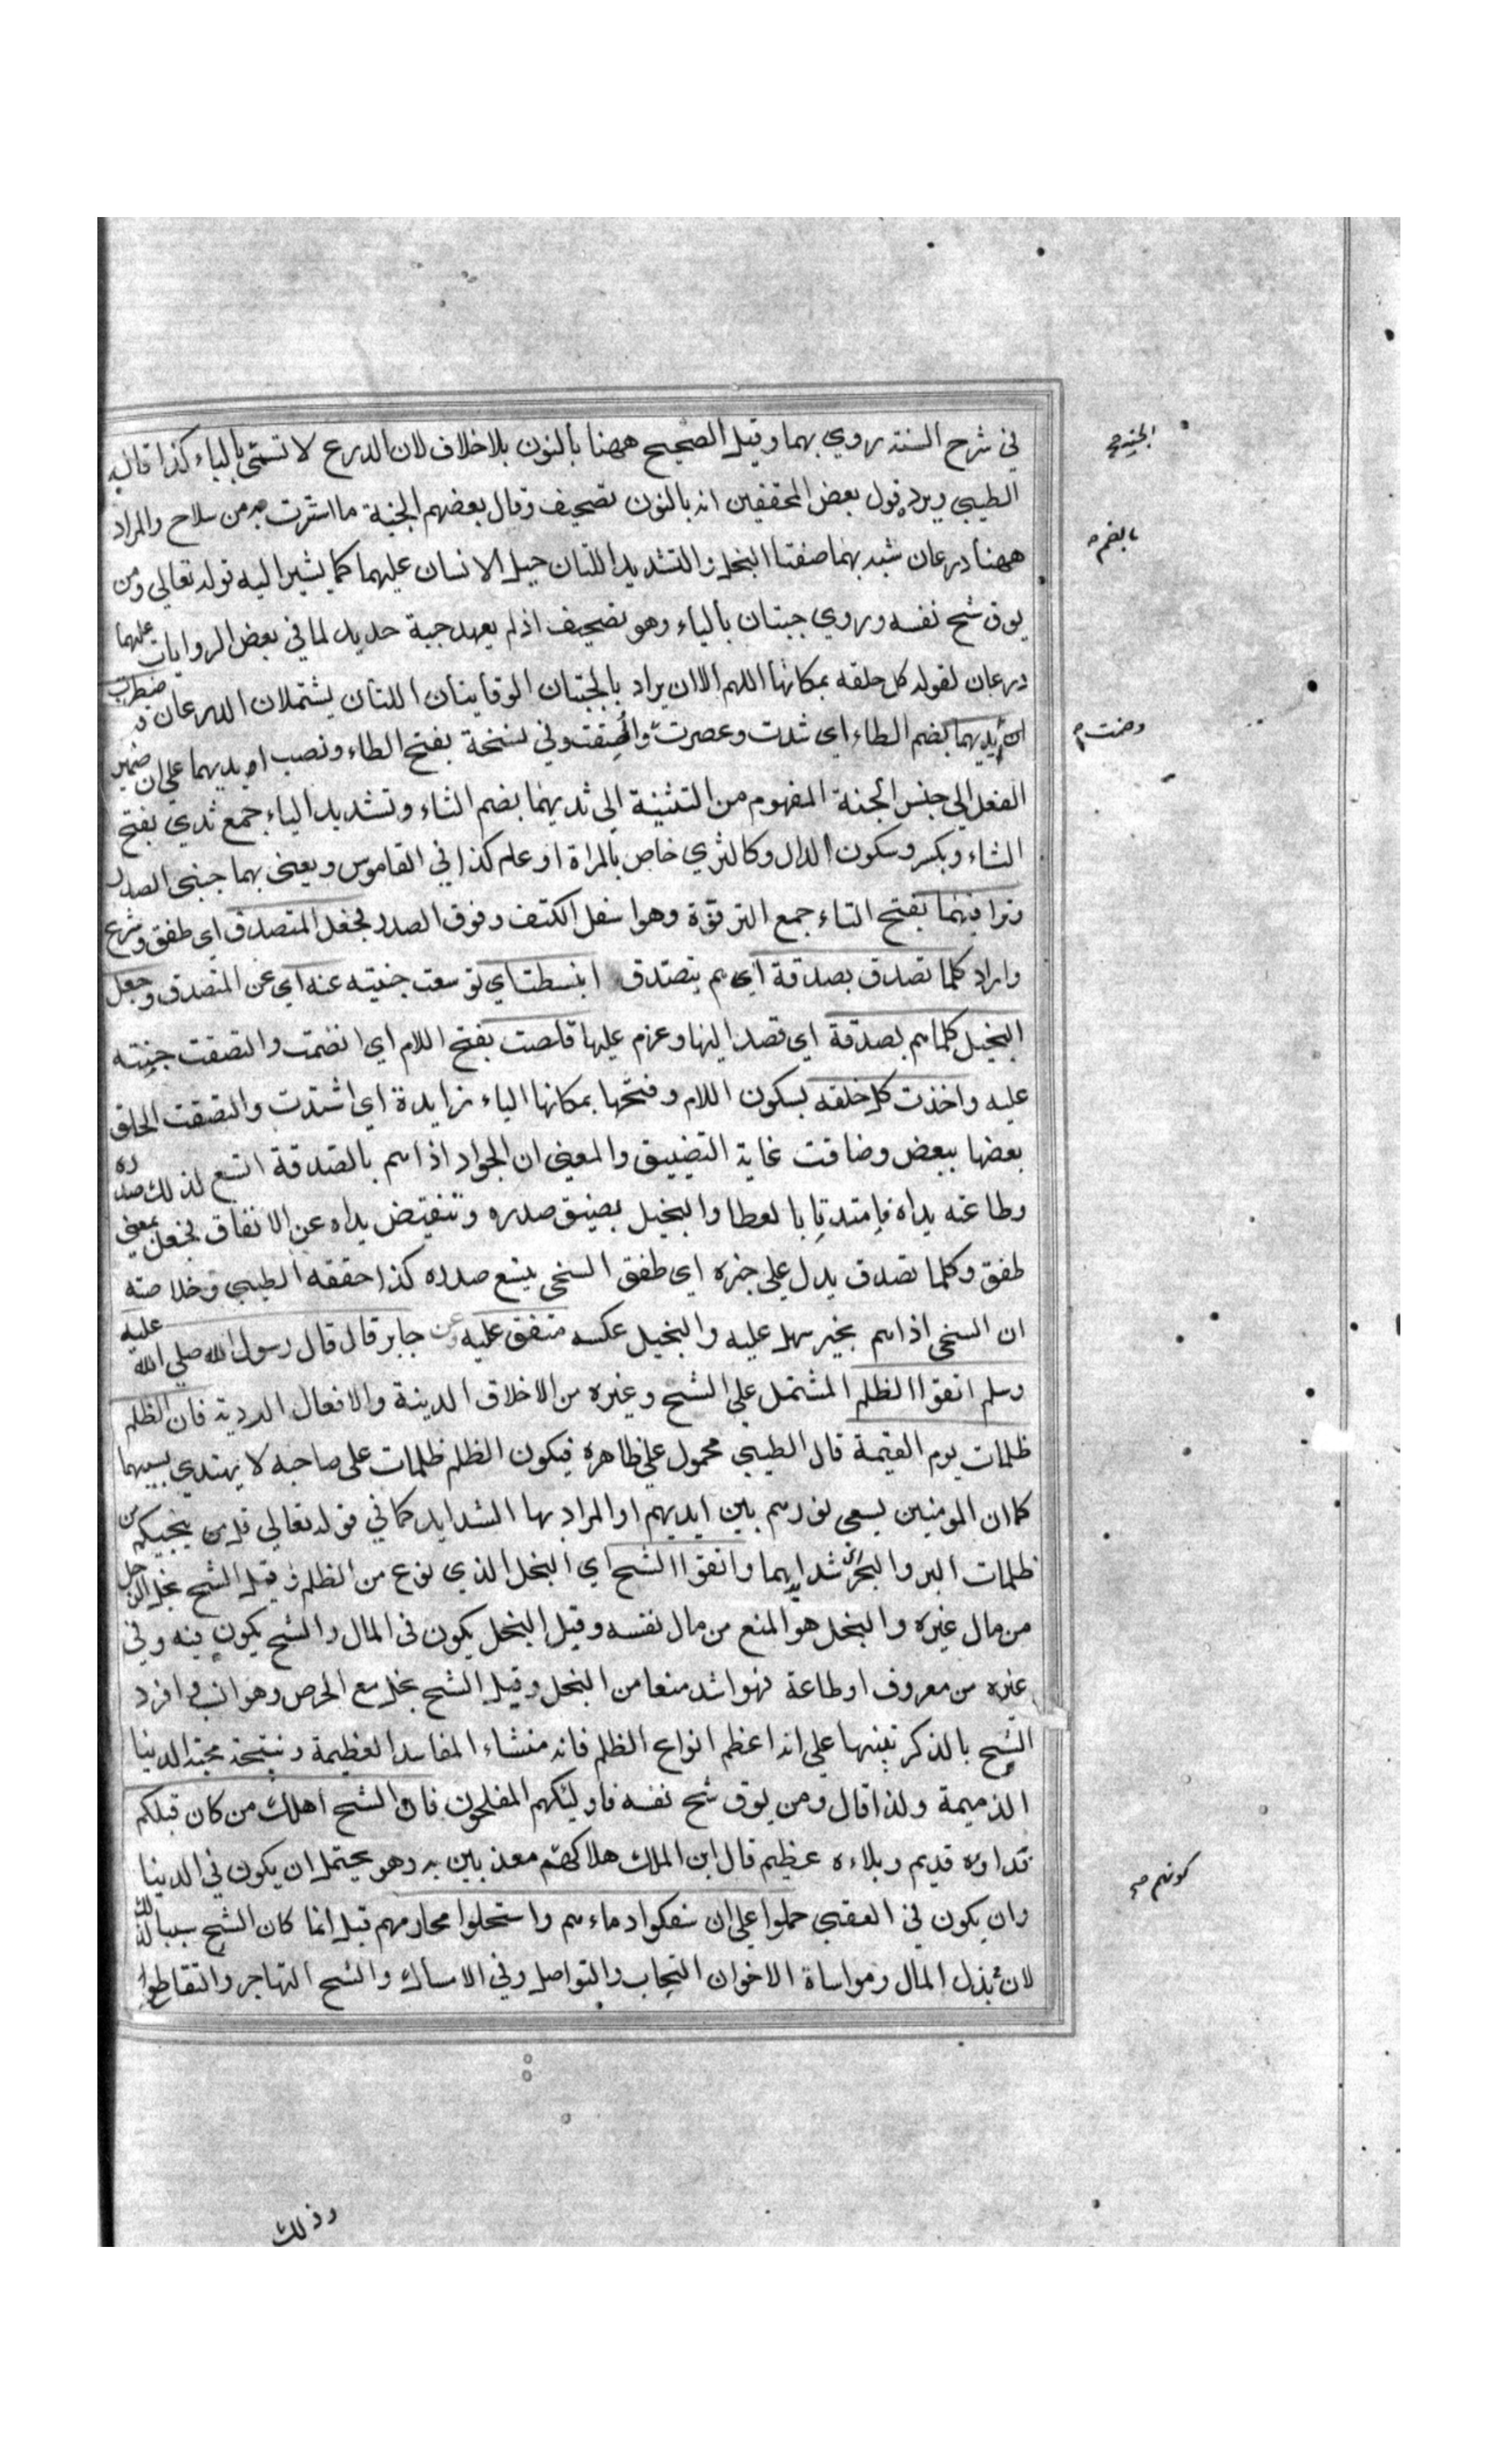 في شرح السنة روي بهما وقيل الصحيح ههنا بالنون بلا خلاف لان الدرع لا تسمى بالباء كذا قاله
الطيبي ويرد قول بعض المحققين انه بالنون تصحيف وقال بعضهم الجنة ما استترت به من سلاح والمراد
ههنا درعان شبه بهما صفتا البخل والتشديد اللتان جبل الانسان عليهما كما يشير اليه قوله تعالى ومن
يوق شح نفسه وروي جبتان بالباء وهو تصحيف اذ لم يعهد جبة حديد لما في بعض الروايات عليهما
درعان لقوله كل حلقه بمكانها اللهم الا ان يراد بالجبتان الوقايتان اللتان يشتملان الدرعان قد اضطرت
ايديهما بضم الطاء اي شدت وعصرت والصقت وفي نسخة بفتح الطاء ونصب ايديهما على ان ضمير
الفعل الى جنس الجنة المفهوم من التثنية الى ثديهما بضم الثاء وتشديد الياء جمع ثدي بفتح
الثاء وبكسر وسكون الدال وكالثري خاص بالمراة او علم كذا في القاموس ويعني بهما جنبي الصدر
وتراقيهما بفتح التاء جمع الترقوة وهو اسفل الكتف وفوق الصدر فجعل المتصدق اي طفق وشرع
واراد كلما تصدق بصدقة اي هم بتصدق انبسطت اي توسعت جنيته عنه اي عن المتصدق وجعل
البخيل كلما هم بصدقة اي قصد اليها وعزم عليها قلصت بفتح اللام اي انضمت والتصقت جنته
عليه واخذت كل حلقه بسكون اللام وفتحها بمكانها الباء زايدة اي اشتدت والتصقت الحلق
بعضها ببعض وضاقت غاية التضييق والمعنى ان الجواد اذا هم بالصدقة اتسع لذلك صدره
وطاعته يداه فامتدتا بالعطا والبخيل يضيق صدره وتنقبض يداه عن الانفاق فجعل بمعنى
طفق وكلما تصدق يدل على خبره اي طفق السخي يتسع صدره كذا حققه الطيبي وخلاصته
ان السخي اذا هم بخير سهل عليه والبخيل عكسه متفق عليه وعن جابر قال قال رسول الله صلى الله عليه
وسلم اتقوا الظلم المشتمل على الشح وغيره من الاخلاق الدنية والافعال الردية فان الظلم
ظلمات يوم القيمة قال الطيبي محمول على ظاهره فيكون الظلم ظلمات على صاحبه لا يهتدي بسببهما
كما ان المومنين يسعى نورهم بين ايديهم او المراد بها الشدايد كما في قوله تعالى قل من ينجيكم من
ظلمات البر والبحر اي شدايدهما واتقوا الشح اي البخل الذي نوع من الظلم وقيل الشح بخل الرجل
من مال غيره والبخل هو المنع من مال نفسه وقيل البخل يكون في المال والشح يكون فيه وفي
غيره من معروف او طاعة فهو اشد منعا من البخل وقيل الشح بخل مع الحرص وهو انسب وافرد
الشح بالذكر تنبيها على انه اعظم انواع الظلم فانه منشاء المفاسد العظيمة ونتيجة محبة الدنيا
الذميمة ولذا قال ومن يوق شح نفسه فاوليكهم المفلحون فان الشح اهلك من كان قبلكم
فداوه قديم وبلاءه عظيم قال ابن الملك هلاكهم معذبين به وهو يحتمل ان يكون في الدنيا
وان يكون في العقبى حملوا على ان سفكوا دماءهم واستحلوا محارمهم قيل انما كان الشح سببا لذلك
لان بذل المال ومواساة الاخوان التحاب والتواصل وفي الامساك والشح التهاجر والتقاطع
الجنة صح
بالضم
وضمت
كونهم صح
وذلك